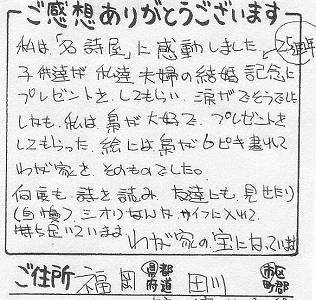 ご感想ありがとうございます
私は「名詩屋」に感動しました。25周年
子供達が私達夫婦の結婚記念に
プレゼントを、してもらい 涙がでそうでした
しかも、私は梟が大好で、プレゼントを
してもらった、絵には梟が6ピキ書れて
わが家を、そのものでした。
何度も、詩を読み 友達にも、見せたり
(自慢)、シオリなんか、サイフに入れて、
持ち歩いています わが家の宝になっています
ご住所 福岡 都道府県 田川 市区町郡